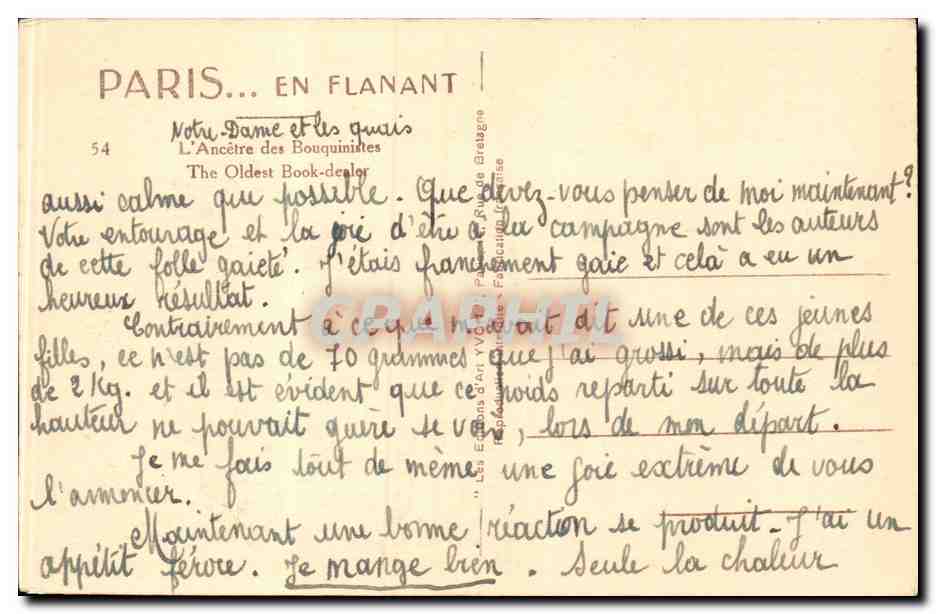 PARIS... EN FLANANT
Notre-Dame et les quais
54 L'Ancêtre des Bouquinistes
The Oldest Book-dealer
aussi calme que possible. Que devez-vous penser de moi maintenant?
Votre entourage et la joie d'être à la campagne sont les auteurs
de cette folle gaieté. J'étais franchement gaie et celà a eu un
heureux résultat.
Contrairement à ce que m'avait dit une de ces jeunes
filles, ce n'est pas de 70 grammes que j'ai grossi, mais de plus
de 2 Kg. et il est évident que ce poids reparti sur toute la
hauteur ne pouvait guère se voir, lors de mon départ.
Je me fais tout de même une joie extrême de vous
l'annoncer.
Maintenant une bonne réaction se produit. J'ai un
appétit féroce. Je mange bien. Seule la chaleur
"Les Editions d'Art YVON", Paris, Rue de Bretagne
Reproduction interdite - Fabrication française
CPAPHIL